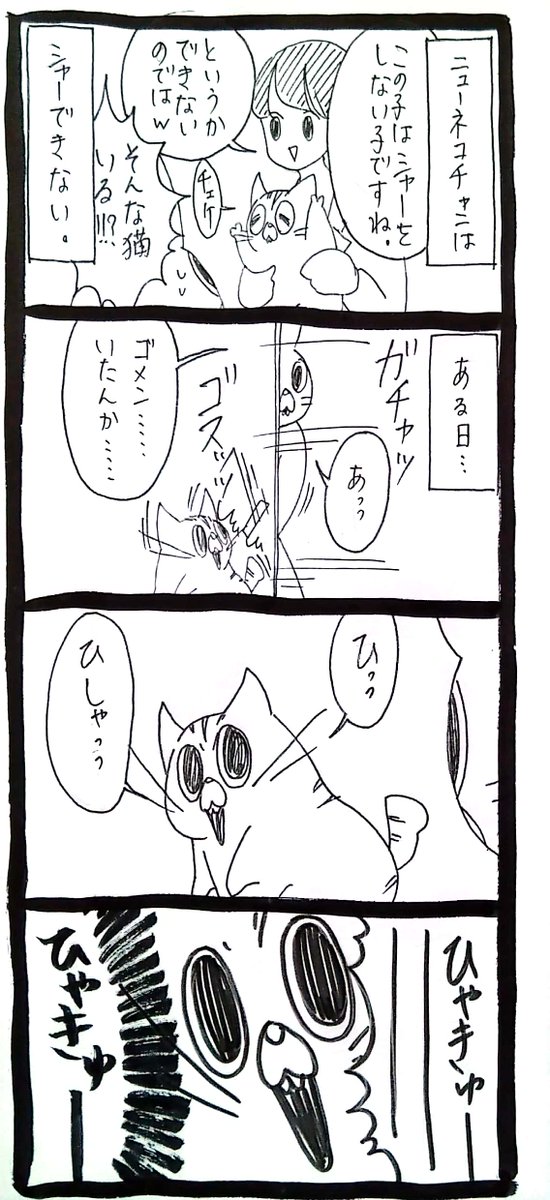 ニューネコチャンは
この子はシャーを
しない子ですね。
というか
できない
のではw
チェケ
そんな猫
いる!!!?
シャーできない。
ある日…
ガチャッ
あっっ
ゴスッッ
ゴメン……
いたんか……
ひっっ
ひしゃっっ
ひゃきゅー
ひゃきゅー